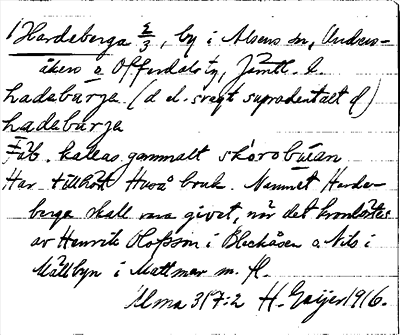 1 Hardeberga 2/3, by i Alsens sn, Undersåkers o Offerdals tg, Jämtl. l.
hadabärja (d el. svagt supradentalt d)
hadabärja
Fäb. kallas gammalt skórobúan
Har tillhört Huså bruk. Namnet Hardeberga skall vara givet, när det brontäktes
av Henrik Olofsson i Bleckåsen o Nils i
Mällbyn i Mattmar m. fl.
Ulma 317:2 H. Geijer 1916.